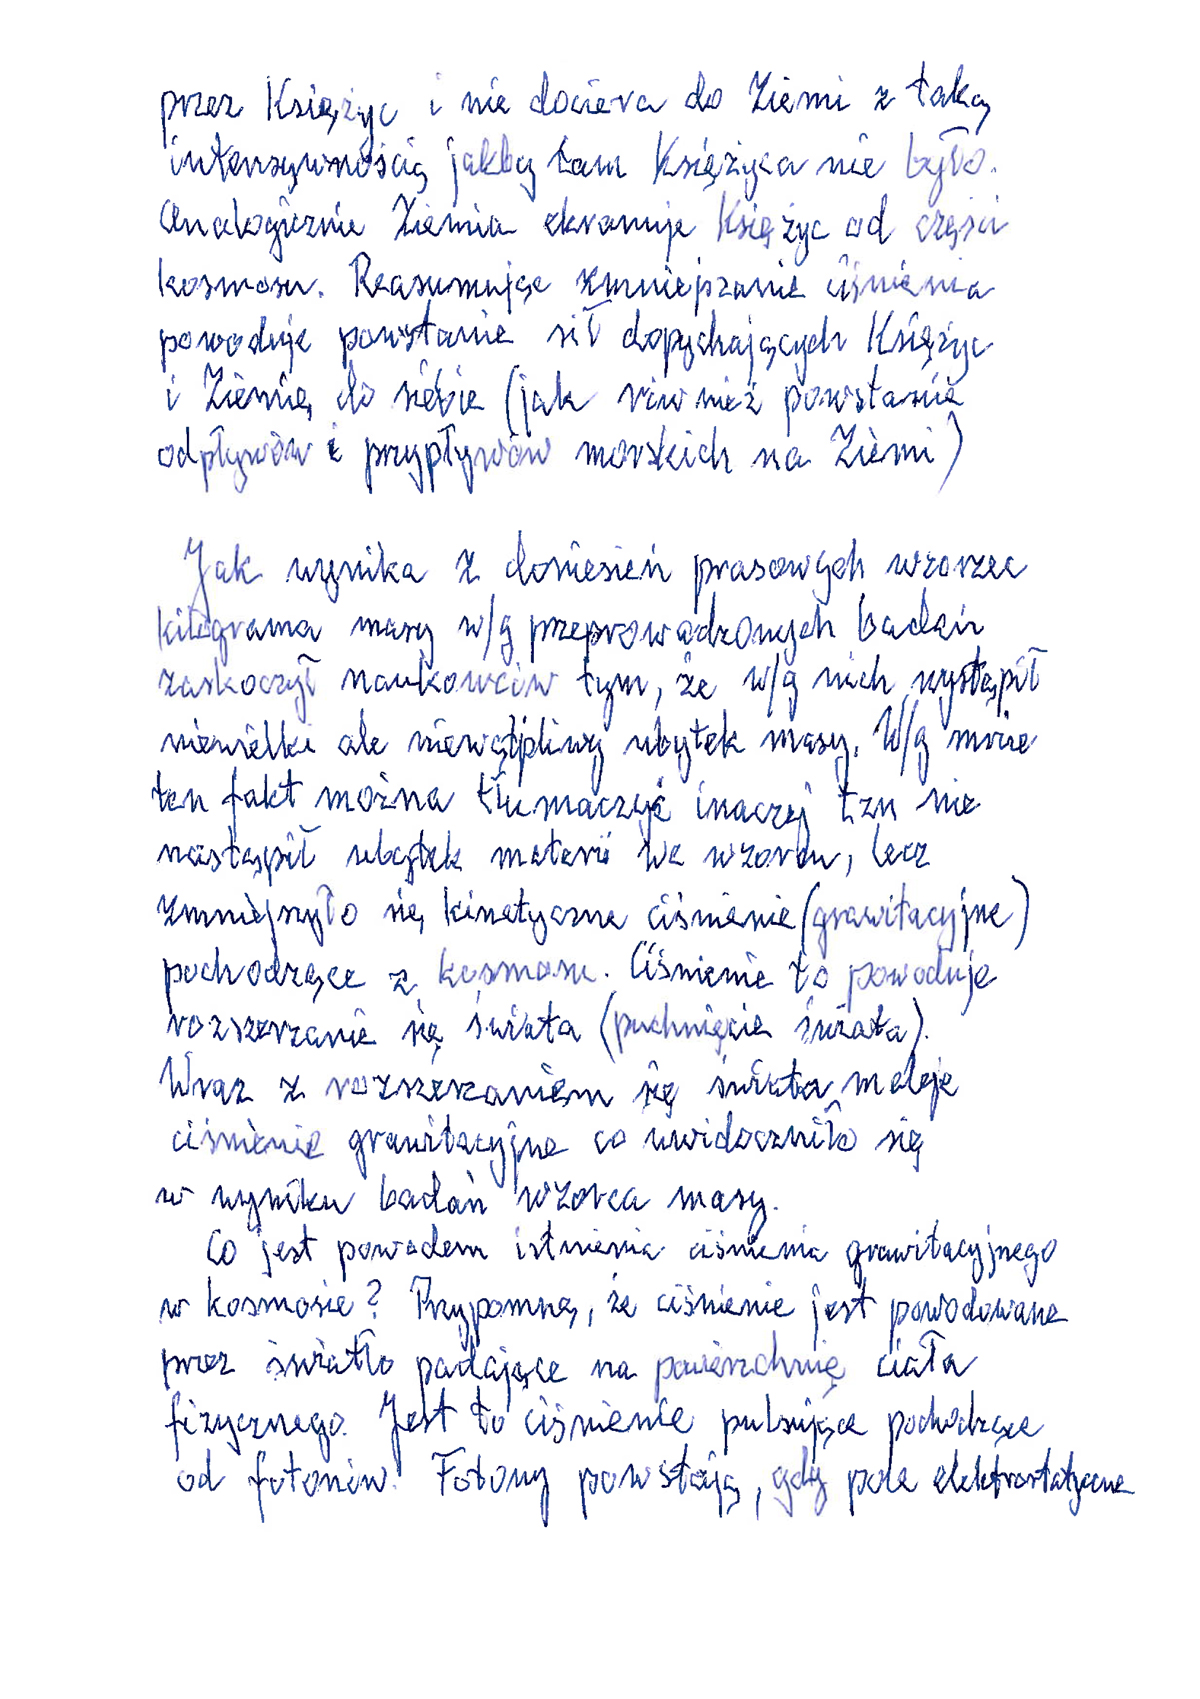 przez Księżyc i nie dociera do Ziemi z taką
intensywnością jakby tam Księżyca nie było.
Analogicznie Ziemia ekranuje Księżyc od części
kosmosu. Reasumując zmniejszanie ciśnienia
powoduje powstanie sił dopychających Księżyc
i Ziemię do siebie (jak również powstanie
odpływów i przypływów morskich na Ziemi)
Jak wynika z doniesień prasowych wzorzec
kilograma masy w/g przeprowadzonych badań
zaskoczył naukowców tym, że w/g nich wystąpił
niewielki ale niewątpliwy ubytek masy. W/g mnie
ten fakt można tłumaczyć inaczej tzn nie
nastąpił ubytek materii we wzorcu, lecz
zmniejszyło się kinetyczne ciśnienie (grawitacyjne)
pochodzące z kosmosu. Ciśnienie to powoduje
rozszerzanie się świata (puchnięcie świata).
Wraz z rozszerzaniem się świata maleje
ciśnienie grawitacyjne co uwidoczniło się
w wyniku badań wzorca masy.
Co jest powodem istnienia ciśnienia grawitacyjnego
w kosmosie? Przypomnę, że ciśnienie jest powodowane
przez światło padające na powierzchnię ciała
fizycznego. Jest to ciśnienie pulsujące pochodzące
od fotonów. Fotony powstają, gdy pole elektrostatyczne